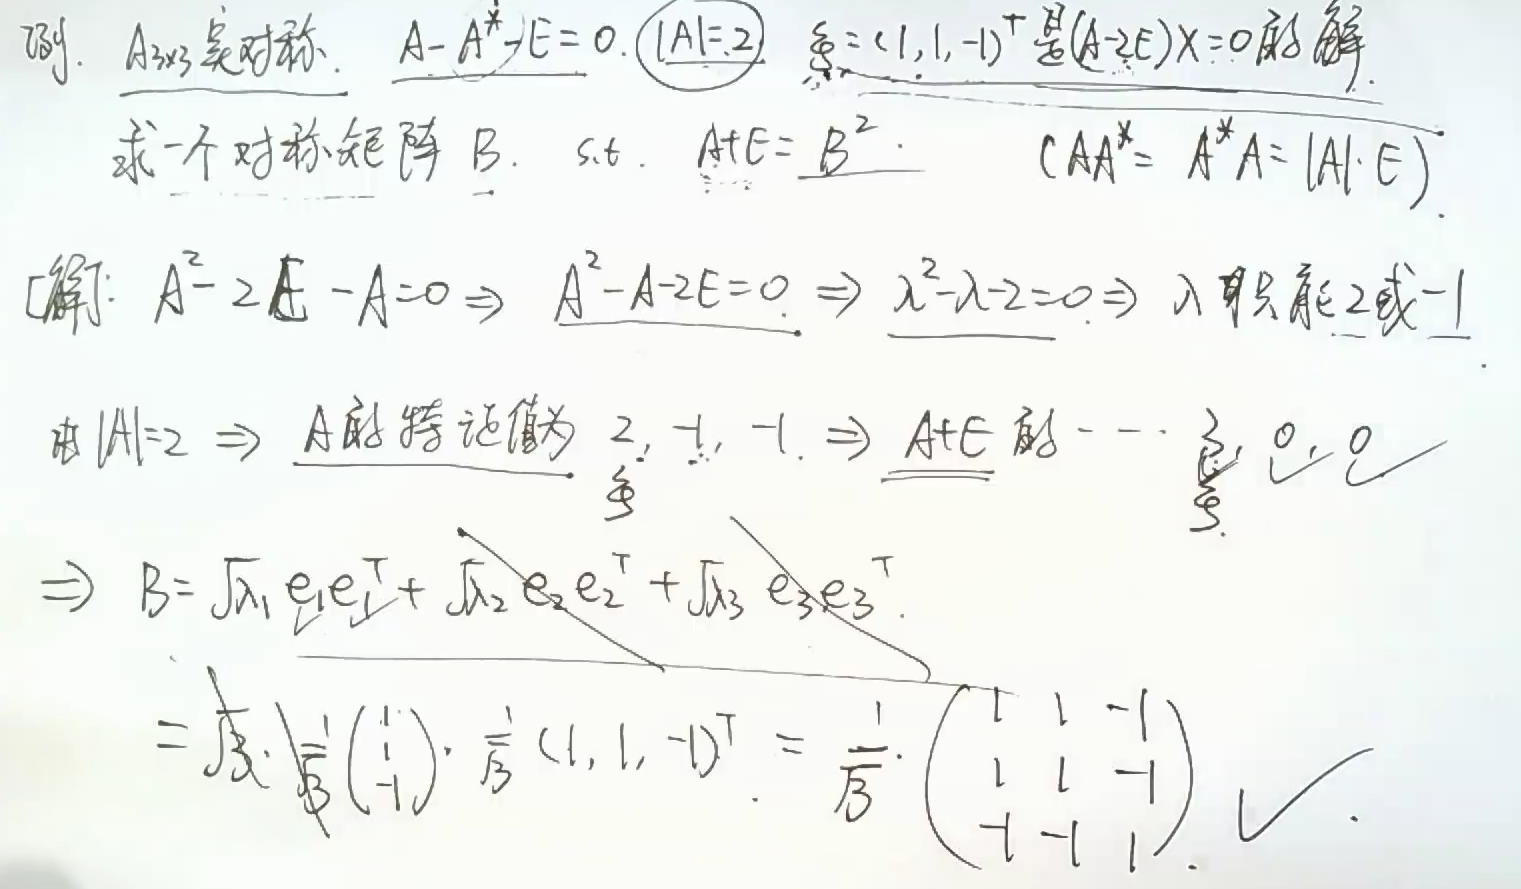 例. A₃ₓ₃实对称. A-A*-E=0. |A|=2 ξ=(1,1,-1)ᵀ是(A-2E)X=0的解.
求一个对称矩阵 B. s.t. A+E=B². (AA*=A*A=|A|·E).
[解]: A²-2E-A=0 ⇒ A²-A-2E=0 ⇒ λ²-λ-2=0 ⇒ λ只能2或-1.
由|A|=2 ⇒ A的特证值为 2, -1, -1. ⇒ A+E的---- 3, 0, 0 ✓
ξ ξ
⇒ B=√λ₁ e₁e₁ᵀ+√λ₂ e₂e₂ᵀ+√λ₃ e₃e₃ᵀ.
=√3·1/√3(1 1 -1)·1/√3(1,1,-1)ᵀ.=1/√3·(1 1 -1
1 1 -1
-1 -1 1). ✓.